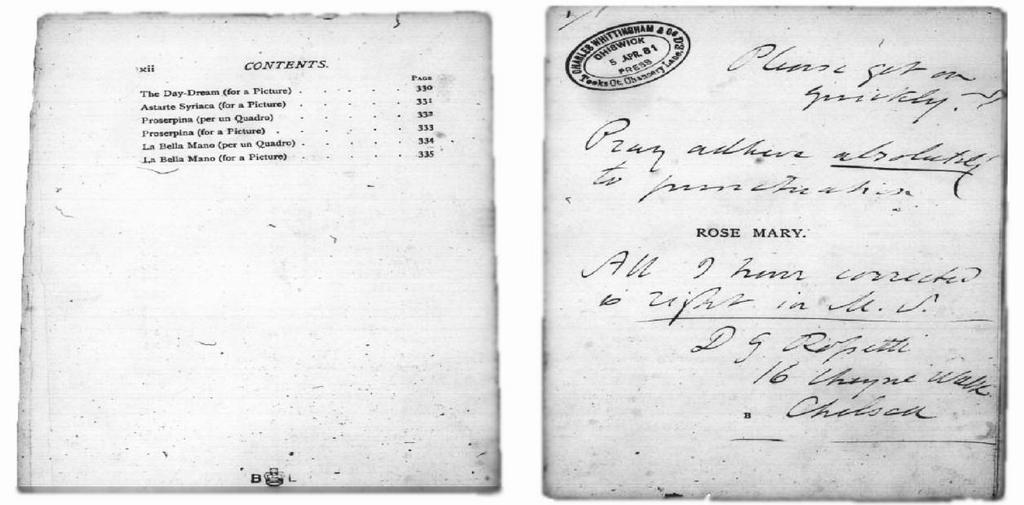 xii CONTENTS.
PAGE
The Day-Dream (for a Picture) . . . . . . 330
Astarte Syriaca (for a Picture) . . . . . . 331
Proserpina (per un Quadro) . . . . . . 332
Proserpina (for a Picture) . . . . . . 333
La Bella Mano (per un Quadro) . . . . . . 334
La Bella Mano (for a Picture) . . . . . . 335
B L
CHARLES WHITTINGHAM & Co
CHISWICK
5 APR. 81
PRESS
Tooks Ct. Chancery Lane.
Please get on
quickly.
Pray adhere absolutely
to punctuation
ROSE MARY.
All I have corrected
is right in M.S.
D G Rossetti
16 Cheyne Walk
B Chelsea